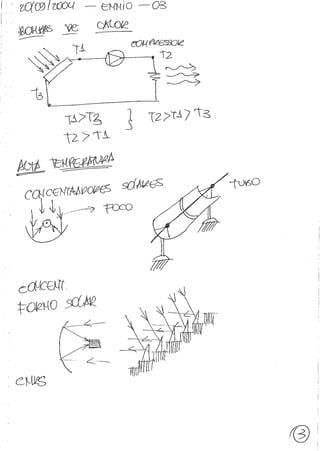 20/09/2004 — ENNIO — 03
BOMBAS DE CALOR
T1
COMPRESSOR
T2
T3
T1>T3 } T2>T1>T3
T2>T1
ALTA TEMPERATURA
CONCENTRADORES SOLARES
TUBO
FOCO
CONCENT.
FORNO SOLAR
CNRS
3